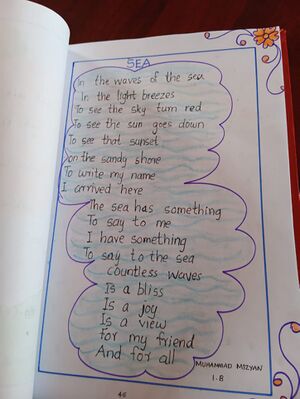 SEA
In the waves of the sea
In the light breezes
To see the sky turn red
To see the sun goes down
To see that sunset
on the sandy shore
To write my name
I arrived here
The sea has something
To say to me
I have something
To say to the sea
countless waves
Is a bliss
Is a joy
Is a view
For my friend
And for all
MUHAMMAD MIZYAN
1-B
46